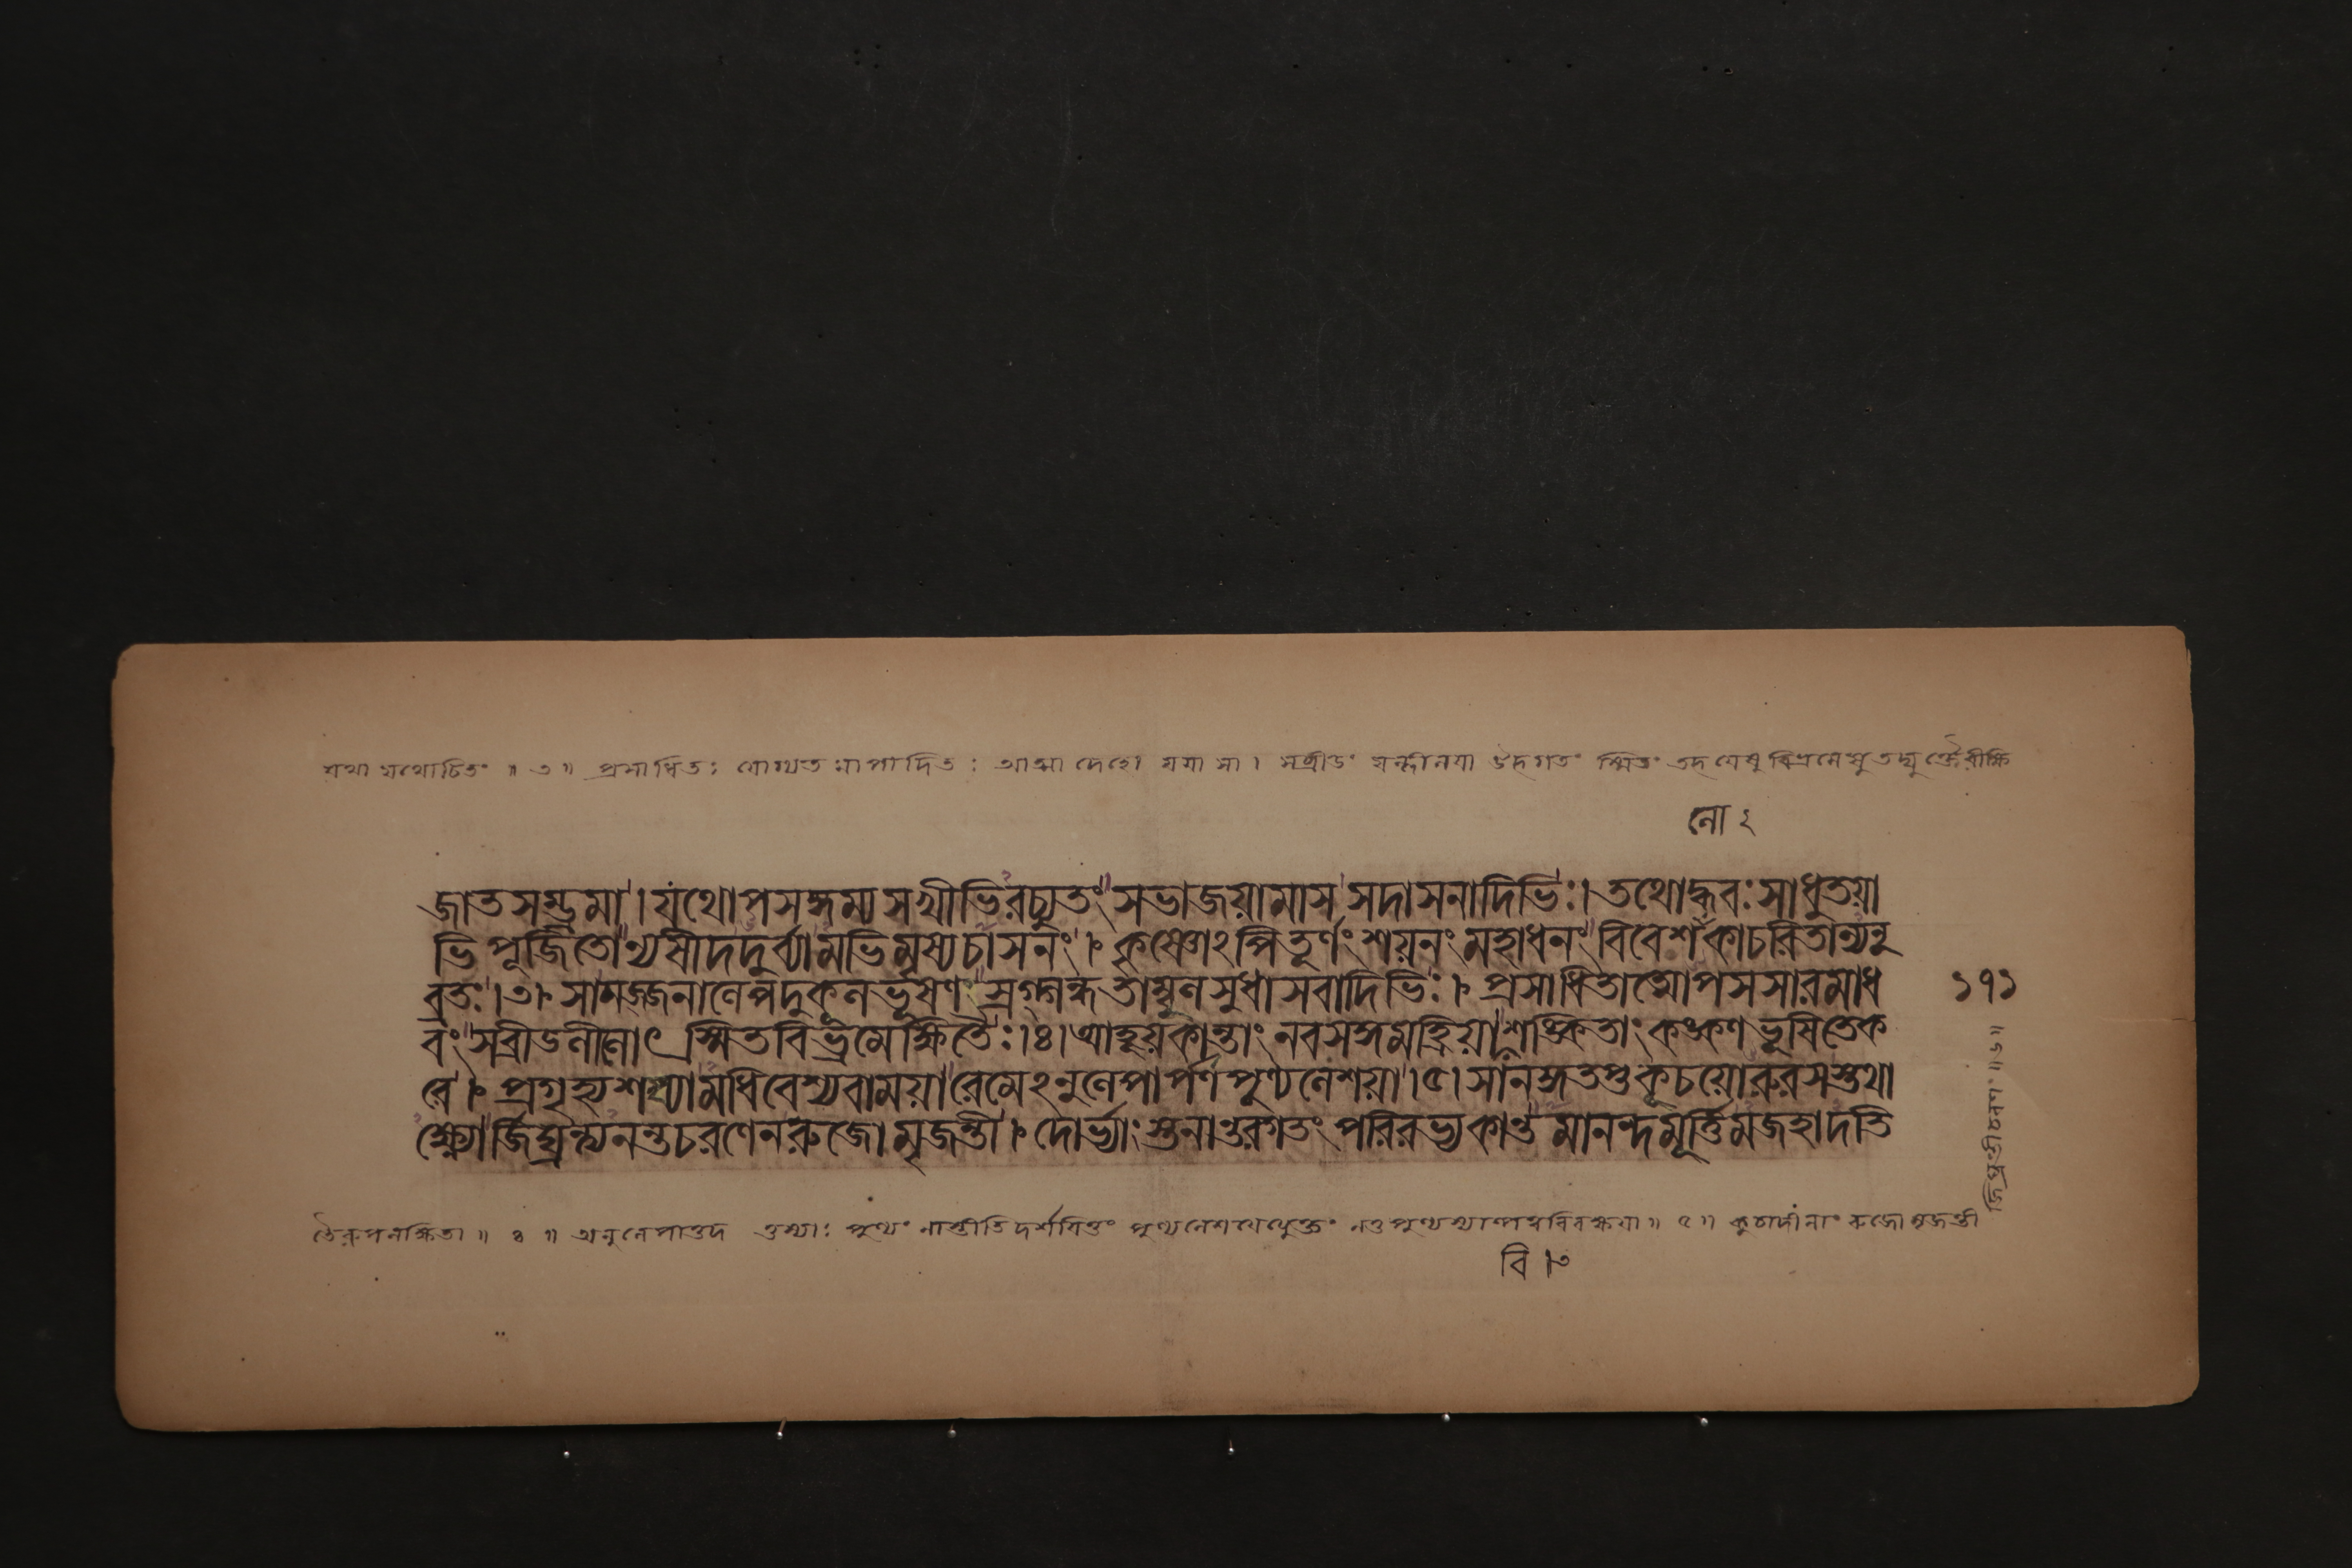 যথা যথোচিতং ॥ ৩ ॥ প্রসাধিতঃ যোগ্যতামাপাদিতঃ আত্মা দেহো যয়া সা। সব্রীড়ং
লো ২
জাতসম্ভ্রমা। যথোপসঙ্গম্য সখীভিরচ্যুতং সভাজয়ামাস সদাসনাদিভিঃ। তথোদ্ধবঃ সাধুতয়া
ভিপূজিতো ন্যষীদদুর্ব্যামভিমৃশ্য চাসনং। কৃষ্ণোঽপি তূর্ণং শয়নং মহাধনং বিবেশ লোকাচরিতান্যনু
ব্রতঃ।৩। সা মজ্জনালেপদুকূলভূষণং স্রগ্গন্ধতাম্বুলসুধাসবাদিভিঃ। প্রসাধিতাত্মোপসসার মাধ
বং সব্রীড়লীলোৎস্মিতবিভ্রমেক্ষিতৈঃ।৪। আহূয় কান্তাং নবসঙ্গমহ্রিয়া শঙ্কিতাং কঙ্কণভূষিতে ক
রে। প্রগৃহ্য শয্যামধিবেশ্য বাময়া রেমেঽনুলেপার্পণপুণ্যলেশয়া।৫। সানঙ্গতপ্তকুচয়োরুরসস্তথা
ক্ষ্ণোর্জিঘ্রন্ত্যনন্তচরণেন রুজো মৃজন্তী। দোর্ভ্যাং স্তনান্তরগতং পরিরভ্য কান্তমানন্দমূর্ত্তিমজহাদতি
১৭১
জিঘ্রন্তী চরণং ॥ ৬ ॥
তৈরুপলক্ষিতা ॥ ৪ ॥ অনুলেপাতদ তস্যাঃ পুণ্যং নাস্তীতি দর্শয়িতুং পুণ্যলেশ ॥ ৫ ॥ কুচাদীনাং রুজো মৃজন্তী
বি ৩